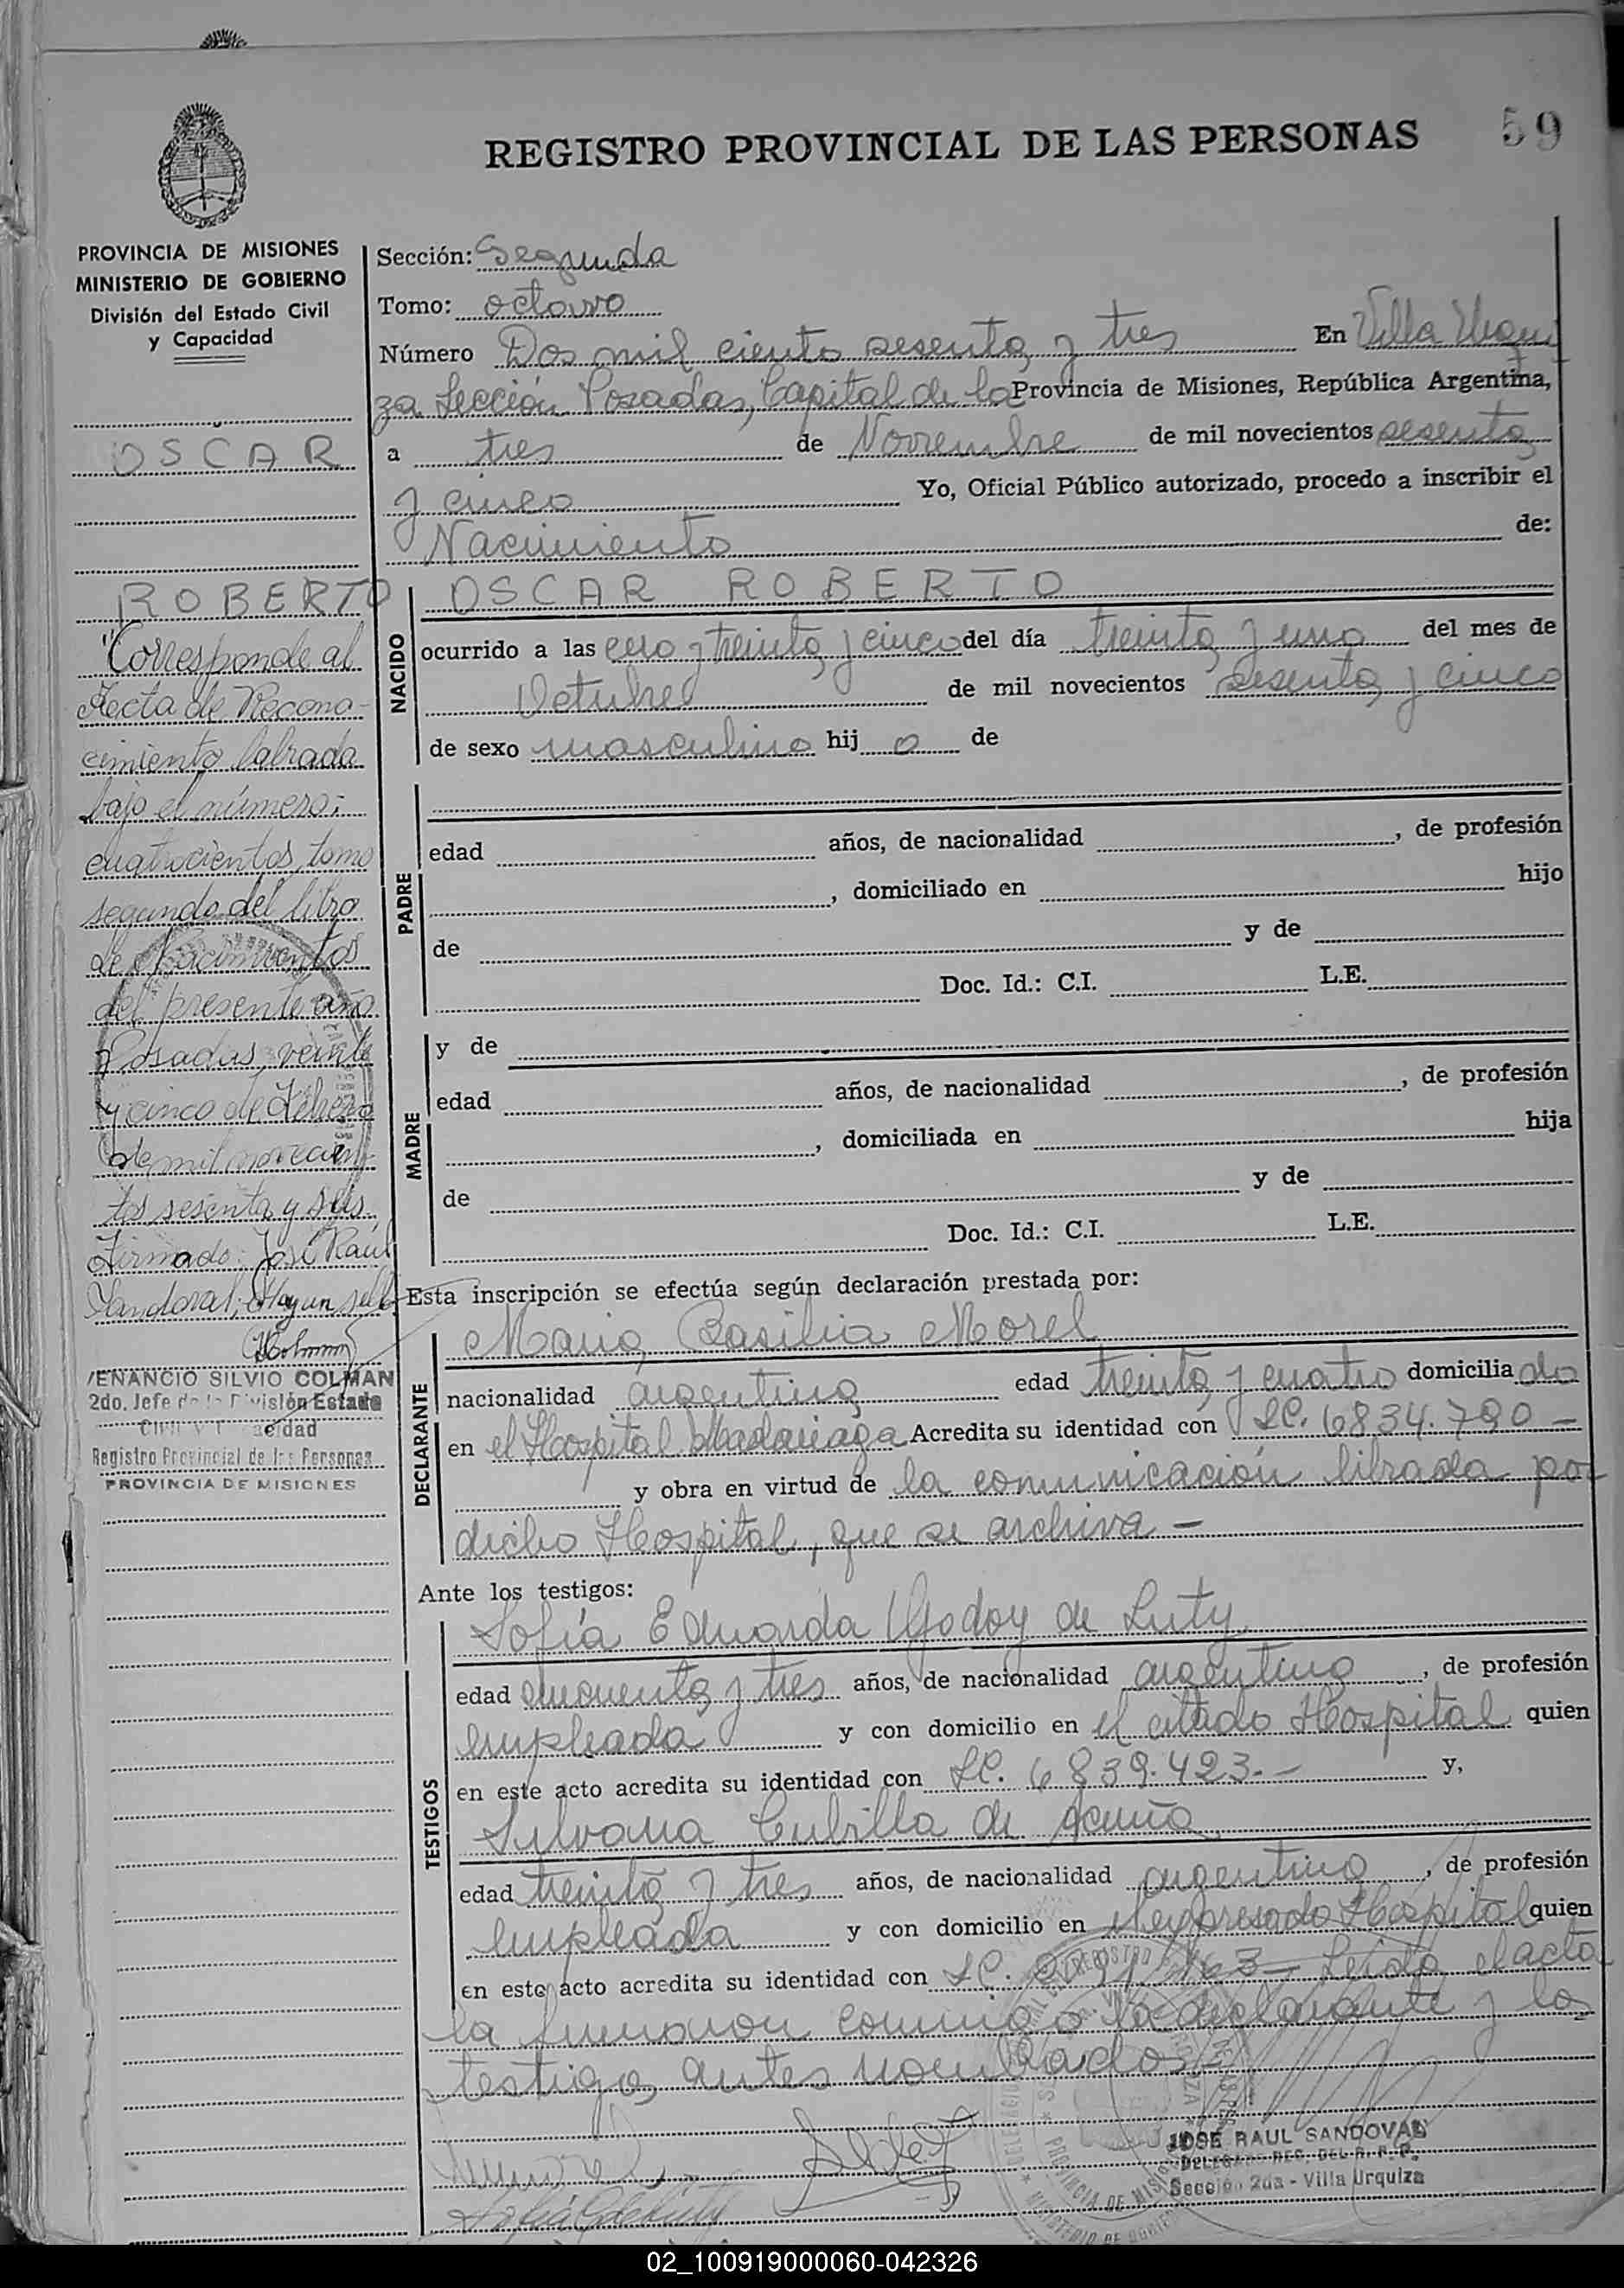 REGISTRO PROVINCIAL DE LAS PERSONAS 59
PROVINCIA DE MISIONES
MINISTERIO DE GOBIERNO
División del Estado Civil
y Capacidad
OSCAR
ROBERTO
"Corresponde al
Acta de Recono-
cimiento labrada
bajo el número:
cuatrocientos, tomo
segundo del libro
de Nacimientos
del presente año
Posadas, veinte
y cinco de Febrero
de mil novecien-
tos sesenta y seis.
Firmado: José Raúl
Sandoval; Hay un sello
VENANCIO SILVIO COLMAN
2do. Jefe de la División Estado
Civil y Capacidad
Registro Provincial de las Personas
PROVINCIA DE MISIONES
Sección: Segunda
Tomo: octavo
Número Dos mil ciento sesenta y tres En Villa Urqui
za Sección Posadas, Capital de la Provincia de Misiones, República Argentina,
a tres de Noviembre de mil novecientos sesenta
y cinco Yo, Oficial Público autorizado, procedo a inscribir el
Nacimiento de:
NACIDO
OSCAR ROBERTO
ocurrido a las cero y treinta y cinco del día treinta y uno del mes de
Octubre de mil novecientos sesenta y cinco
de sexo masculino hij o de
PADRE
edad años, de nacionalidad , de profesión
, domiciliado en hijo
de y de
Doc. Id.: C.I. L.E.
MADRE
y de
edad años, de nacionalidad , de profesión
, domiciliada en hija
de y de
Doc. Id.: C.I. L.E.
Esta inscripción se efectúa según declaración prestada por:
DECLARANTE
Maria Basilia Morel
nacionalidad argentina edad treinta y cuatro domicilia do
en el Hospital Madariaga Acredita su identidad con LC. 6834.790 -
y obra en virtud de la comunicación librada por
dicho Hospital, que se archiva -
Ante los testigos:
TESTIGOS
Sofía Eduarda Godoy de Luty
edad cincuenta y tres años, de nacionalidad argentina , de profesión
empleada y con domicilio en el citado Hospital quien
en este acto acredita su identidad con LC. 6839.423.- y,
Silvana Cubilla de Acuña
edad treinta y tres años, de nacionalidad argentina , de profesión
empleada y con domicilio en el expresado Hospital quien
en este acto acredita su identidad con LC. Leida el acta
la firmaron conmigo la declarante y los
testigos antes nombrados
JOSE RAUL SANDOVAL
DELEGADO REG. DEL R. P. P.
Sección 2da - Villa Urquiza
02_100919000060-042326